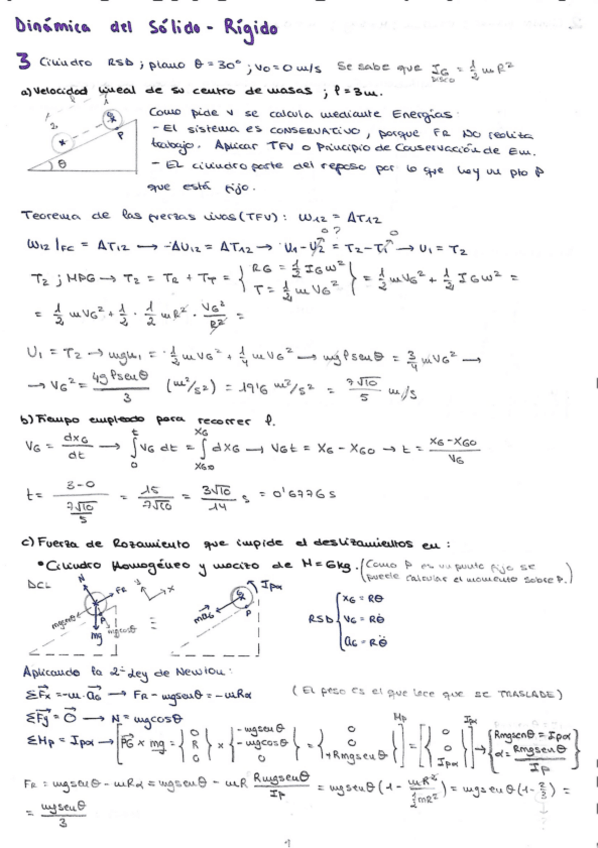 Dinámica del Sólido - Rígido
3 Cilindro RSD ; plano θ = 30° ; V0 = 0 m/s Se sabe que IG = 1/2 mR²
DISCO
a) Velocidad lineal de su centro de masas ; l = 3m.
Como pide v se calcula mediante Energías:
- El sistema es CONSERVATIVO, porque FR NO realiza
trabajo. Aplicar TFV o Principio de Conservación de Em.
- EL cilindro parte del reposo por lo que hay un pto P
que está fijo.
2 G P θ
Teorema de las fuerzas vivas (TFV) : W12 = ΔT12
W12 |FC = ΔT12 → -ΔU12 = ΔT12 → U1 - U2 = T2 - T1 → U1 = T2
T2 ; MPG → T2 = TR + TT = { RG = 1/2 IG ω² ; T = 1/2 m VG² } = 1/2 m VG² + 1/2 IG ω² =
= 1/2 m VG² + 1/2 · 1/2 mR² · VG²/R² =
U1 = T2 → mgh1 = 1/2 m VG² + 1/4 m VG² → mg l senθ = 3/4 m VG² →
→ VG² = 4g l senθ / 3 (m²/s²) = 19'6 m²/s² = 7√10 / 5 m/s
b) Tiempo empleado para recorrer l.
VG = dxG/dt → ∫0^t VG dt = ∫XG0^XG dXG → VG t = XG - XG0 → t = XG - XG0 / VG
t = 3 - 0 / 7√10/5 = 15 / 7√10 = 3√10 / 14 s = 0'6776 s
c) Fuerza de Rozamiento que impide el deslizamiento en :
• Cilindro Homogéneo y macizo de M = 6kg. (Como P es un punto fijo se
puede calcular el momento sobre P.)
DCL N FR x y mgsenθ P mg mgcosθ = maG G P Ipα
RSD { XG = Rθ
VG = Rθ̇
aG = Rθ̈
Aplicando la 2ª ley de Newton :
ΣFx = -m · aG → FR - mgsenθ = -mRα (El peso es el que hace que se TRASLADE)
ΣFy = 0 → N = mgcosθ
ΣHp = Ipα → [PG × mg = {0 R 0} × {-mgsenθ -mgcosθ 0} = {0 0 +Rmgsenθ}] Hp = [0 0 Ipα] Ipα → {Rmgsenθ = Ipα ; α = Rmgsenθ / Ip}
FR = mgsenθ - mRα = mgsenθ - mR Rmgsenθ / Ip = mgsenθ (1 - mR² / 3/2 mR²) = mgsenθ (1 - 2/3) =
= mgsenθ / 3
1